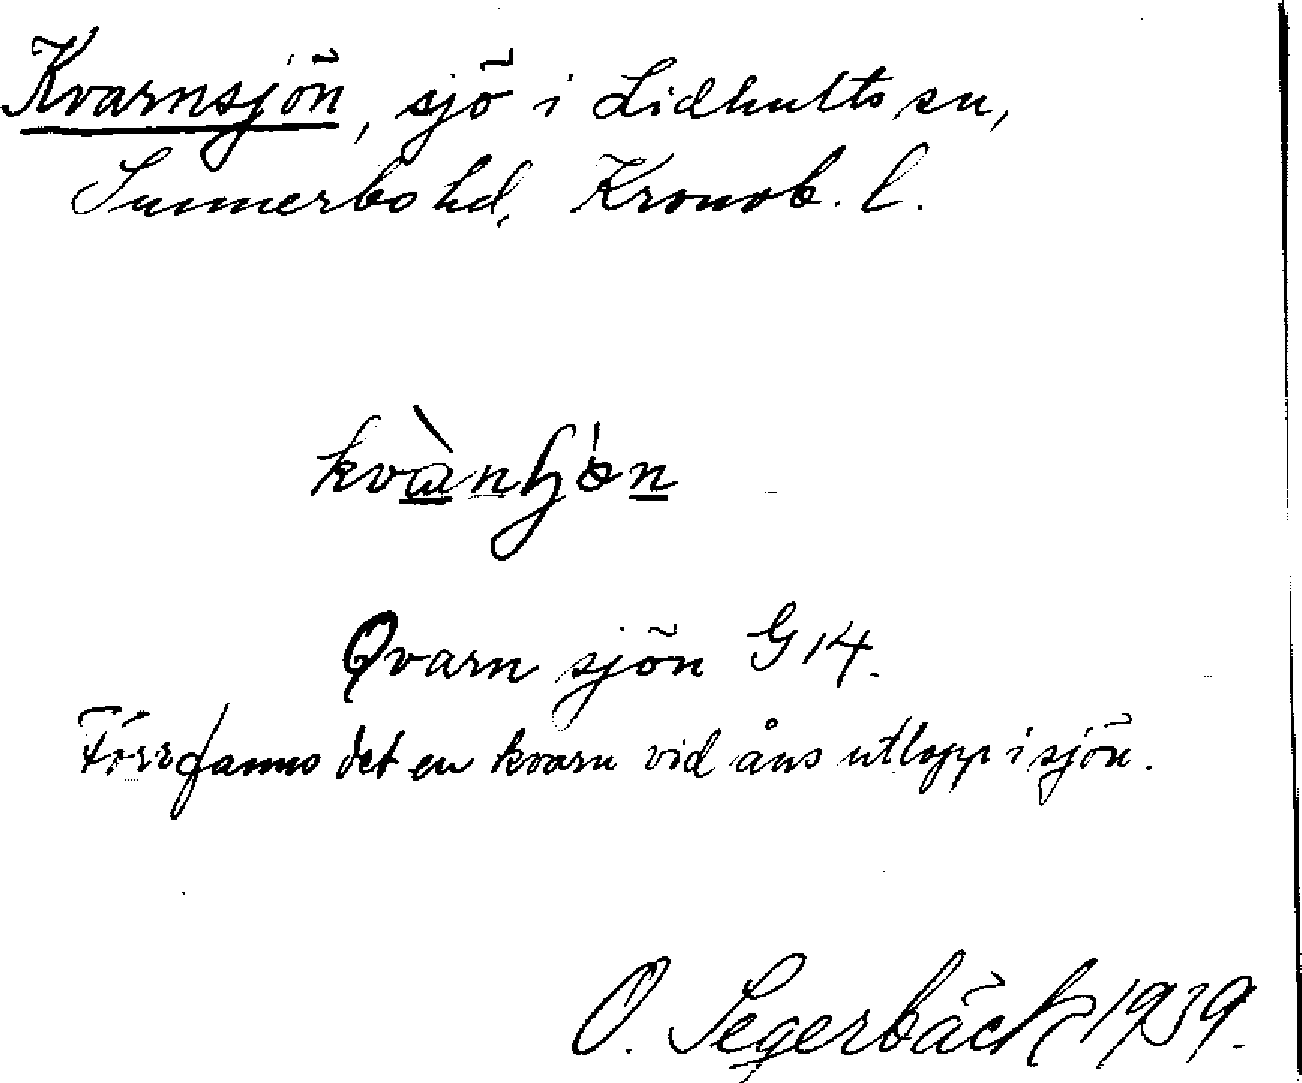 Kvarnsjön, sjö i Lidhults sn,
Sunnerbo hd, Kronob. l.
Qvarn sjön G 14.
Förr fanns det en kvarn vid åns utlopp i sjön.
O. Segerbäck 1939.